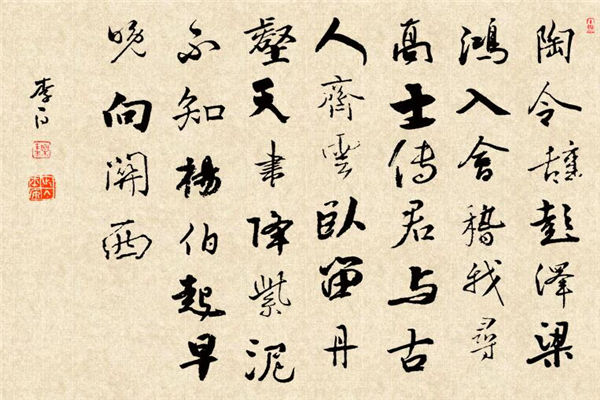 陶令辭彭澤梁
鴻入會稽我尋
高士傳君与古
人齊雲臥留丹
壑天書降紫泥
不知楊伯起早
晚向關西
李白